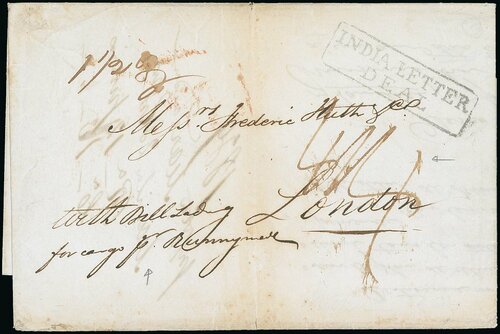 1 1/2 oz
INDIA LETTER
DEAL
Messrs Frederic Huth & Co.
London
with Bill Lading
for cargo pr Runnymede